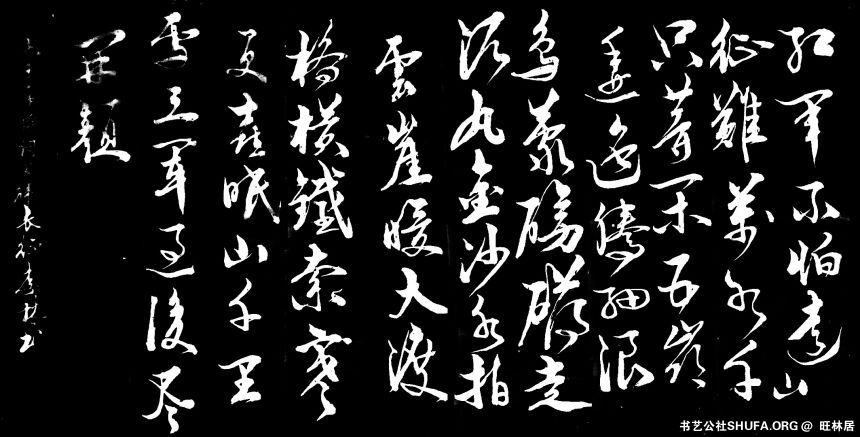 红军不怕遠
征難萬水千山
只等闲五嶺
逶迤騰細浪
烏蒙磅礴走
泥丸金沙水拍
雲崖暖大渡
橋横鐵索寒
更喜岷山千里
雪三軍过後尽
开颜
長征
书艺公社SHUFA.ORG @ 旺林居